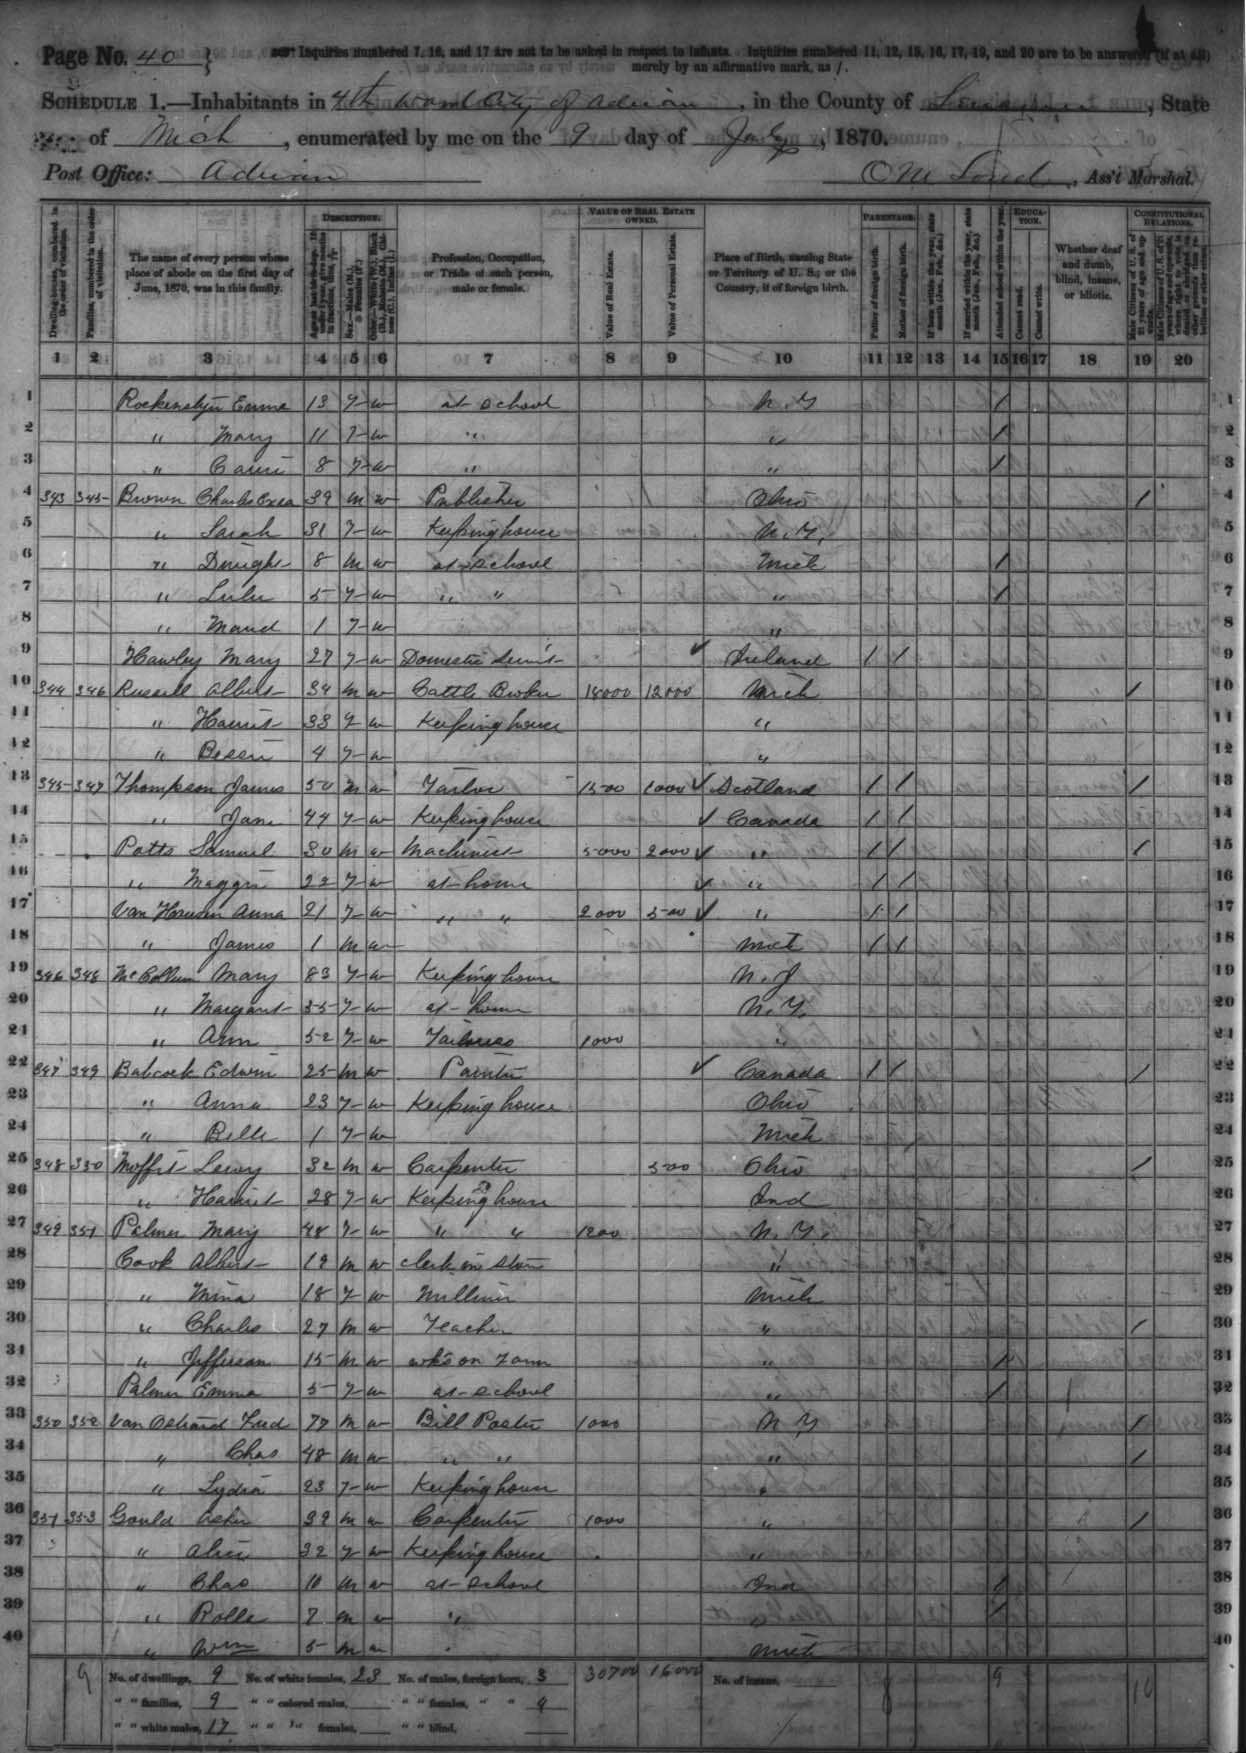 Page No. 40
Inquiries numbered 7, 16, and 17 are not to be asked in respect to infants. Inquiries numbered 11, 12, 15, 16, 17, 19, and 20 are to be answered (if at all)
merely by an affirmative mark, as /.
SCHEDULE 1.—Inhabitants in 4th Ward City of Adrian, in the County of Lenawee, State
of Mich, enumerated by me on the 9 day of July, 1870.
Post Office: Adrian , Ass't Marshal.
DESCRIPTION. VALUE OF REAL ESTATE OWNED. PARENTAGE. EDUCATION. CONSTITUTIONAL RELATIONS.
Dwelling-houses, numbered in the order of visitation.
Families, numbered in the order of visitation.
The name of every person whose place of abode on the first day of June, 1870, was in this family.
Profession, Occupation, or Trade of each person, male or female.
Value of Real Estate.
Value of Personal Estate.
Place of Birth, naming State or Territory of U. S.; or the Country, if of foreign birth.
Father of foreign birth.
Mother of foreign birth.
If born within the year, state month (Jan., Feb., &c.)
If married within the year, state month (Jan., Feb., &c.)
Attended school within the year.
Cannot read.
Cannot write.
Whether deaf and dumb, blind, insane, or idiotic.
1 2 3 4 5 6 7 8 9 10 11 12 13 14 15 16 17 18 19 20
1 Emma 13 F W at school N. Y / 1
2 " Mary 11 F W " " / 2
3 " 8 F W " " / 3
4 343 345 Brown Charles 39 M W Publisher Ohio / 4
5 " Sarah 31 F W Keeping house N. Y. 5
6 " Dwight 8 M W at school Mich / 6
7 " Lulu 5 F W " " " / 7
8 " Maud 1 F W " 8
9 Hawley Mary 27 F W Domestic Serv't ✓ Ireland / / 9
10 344 346 Russell Albert 34 M W Cattle Broker 18000 12000 Mich / 10
11 " Harriet 33 F W Keeping house " 11
12 " Bessie 4 F W " 12
13 345 347 Thompson James 50 M W Tailor 1500 1000 ✓ Scotland / / / 13
14 " Jane 44 F W Keeping house ✓ Canada / / 14
15 Potts Samuel 30 M W Machinist 5000 2000 ✓ " / / / 15
16 " Maggie 22 F W at home ✓ " / / 16
17 Anna 21 F W " " 2000 500 ✓ " / / 17
18 " James 1 M W Mich / / 18
19 346 348 McCollum Mary 83 F W Keeping house N. J 19
20 " Margaret 55 F W at home N. Y. 20
21 " Ann 52 F W Tailoress 1000 " 21
22 347 349 Babcock Edwin 25 M W Painter ✓ Canada / / / 22
23 " Anna 23 F W Keeping house Ohio 23
24 " Belle 1 F W Mich 24
25 348 350 Moffit 32 M W Carpenter 500 Ohio / 25
26 " Harriet 28 F W Keeping house Ind 26
27 349 351 Palmer Mary 48 F W " " 1200 N. Y. 27
28 Cook Albert 19 M W clerk in store " 28
29 " Mina 18 F W Milliner Mich 29
30 " Charles 27 M W Teacher " / 30
31 " Jefferson 15 M W wks on Farm " / 31
32 Palmer Emma 5 F W at school " / 32
33 350 352 Van Ostrand Fred 77 M W Bill Poster 1000 N Y / 33
34 " Chas 48 M W " " " / 34
35 " Lydia 23 F W Keeping house " 35
36 351 353 Gould 39 M W Carpenter 1000 " / 36
37 " Alice 32 F W Keeping house " 37
38 " Chas 10 M W at school Ind / 38
39 " Rolla 7 M W " " / 39
40 " Wm 5 M W Mich 40
9 No. of dwellings, 9 No. of white females, 23 No. of males, foreign born, 3 30700 16000 No. of insane, 8 9 10
" " families, 9 " " colored males, " " females, " " 4
" " white males, 17 " " " females, " " blind,